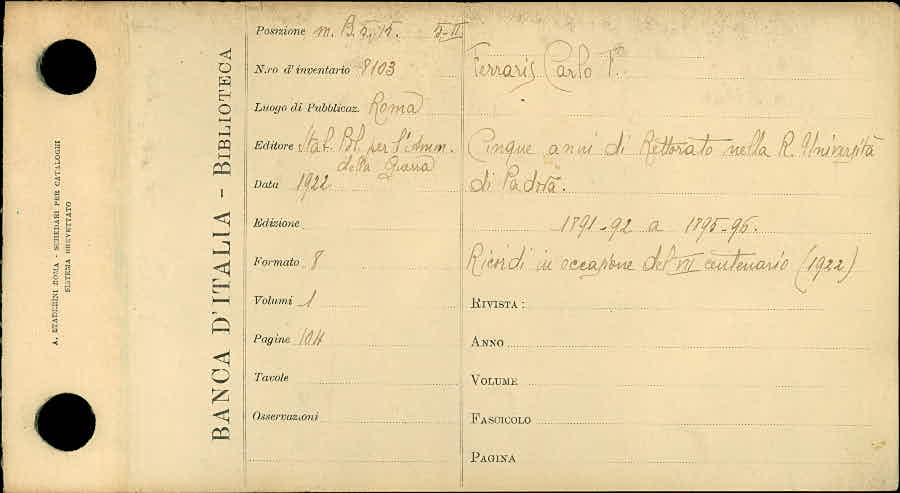 A. STADERINI ROMA - SCHEDARI PER CATALOGHI
SISTEMA BREVETTATO
BANCA D'ITALIA - BIBLIOTECA
Posizione m. B. 5-II
N.ro d'inventario 8103
Luogo di Pubblicaz. Roma
Editore Stab. Pol. per l'Amm.
della Guerra
Data 1922
Edizione
Formato 8
Volumi 1
Pagine 104
Tavole
Osservazioni
Ferraris Carlo F.
Cinque anni di Rettorato nella R. Università
di Padova.
1891-92 a 1895-96.
Ricordi in occasione del VII centenario (1922)
RIVISTA:
ANNO
VOLUME
FASCICOLO
PAGINA